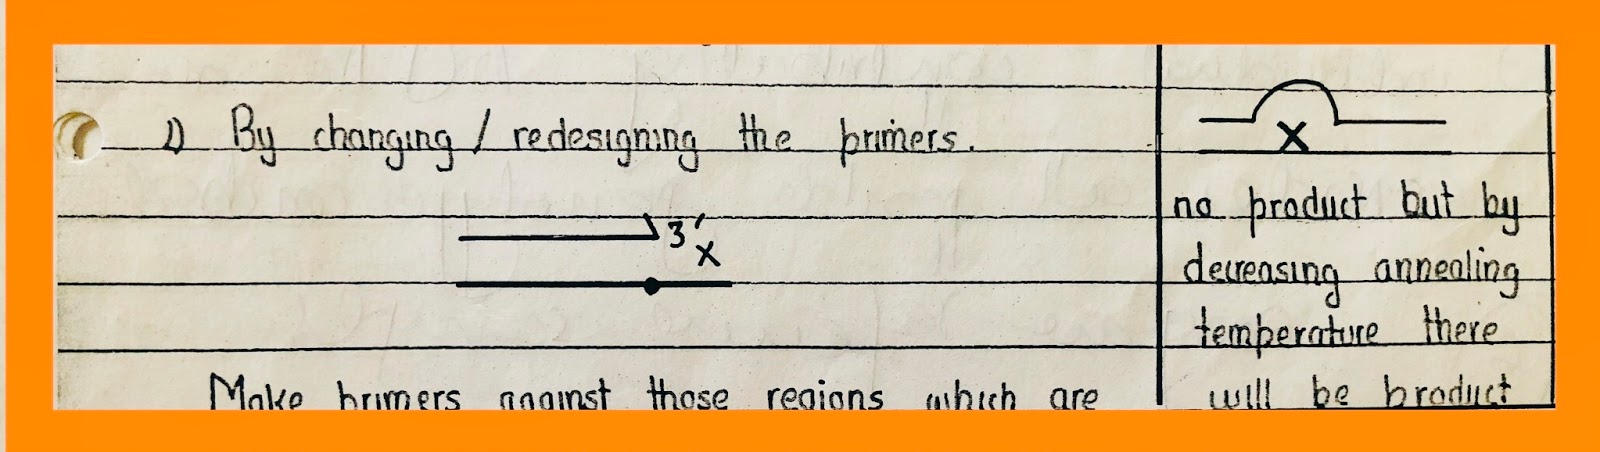 1) By changing / redesigning the primers.
3' X
Make primers against those regions which are
X
no product but by
decreasing annealing
temperature there
will be product